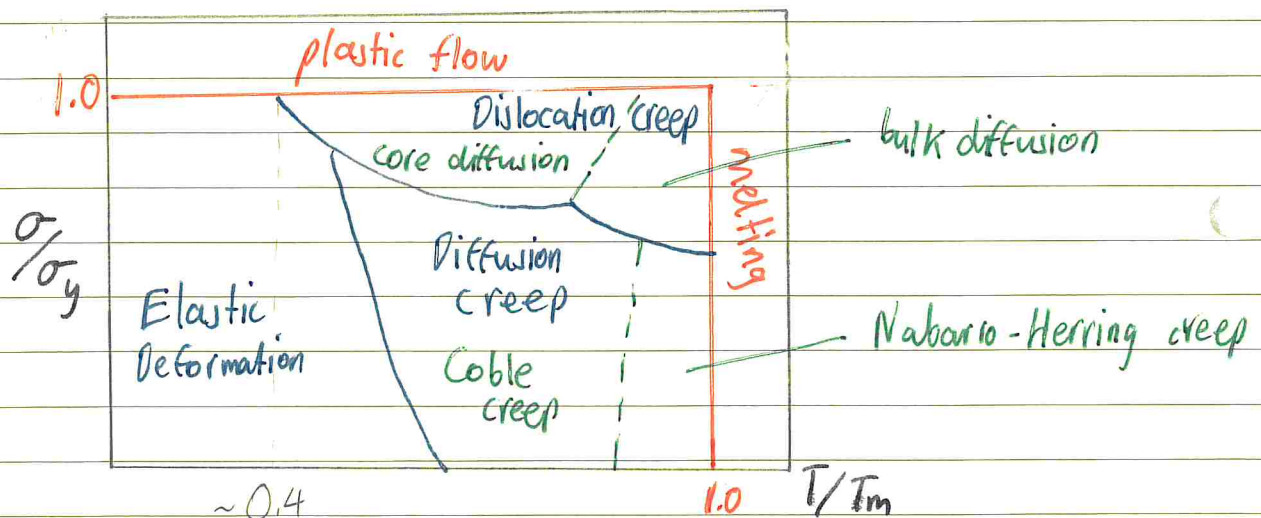 plastic flow
1.0
Dislocation creep
core diffusion
bulk diffusion
melting
σ/σy
Diffusion
creep
Elastic
Deformation
Nabarro-Herring creep
Coble
creep
~0.4
1.0
T/Tm